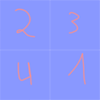 2 3
4 1